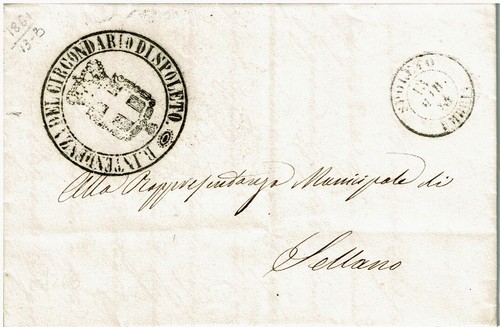 1861
R. INTENDENZA DEL CIRCONDARIO DI SPOLETO.
SPOLETO
UMBRIA
Alla Rappresentanza Municipale di
Sellano